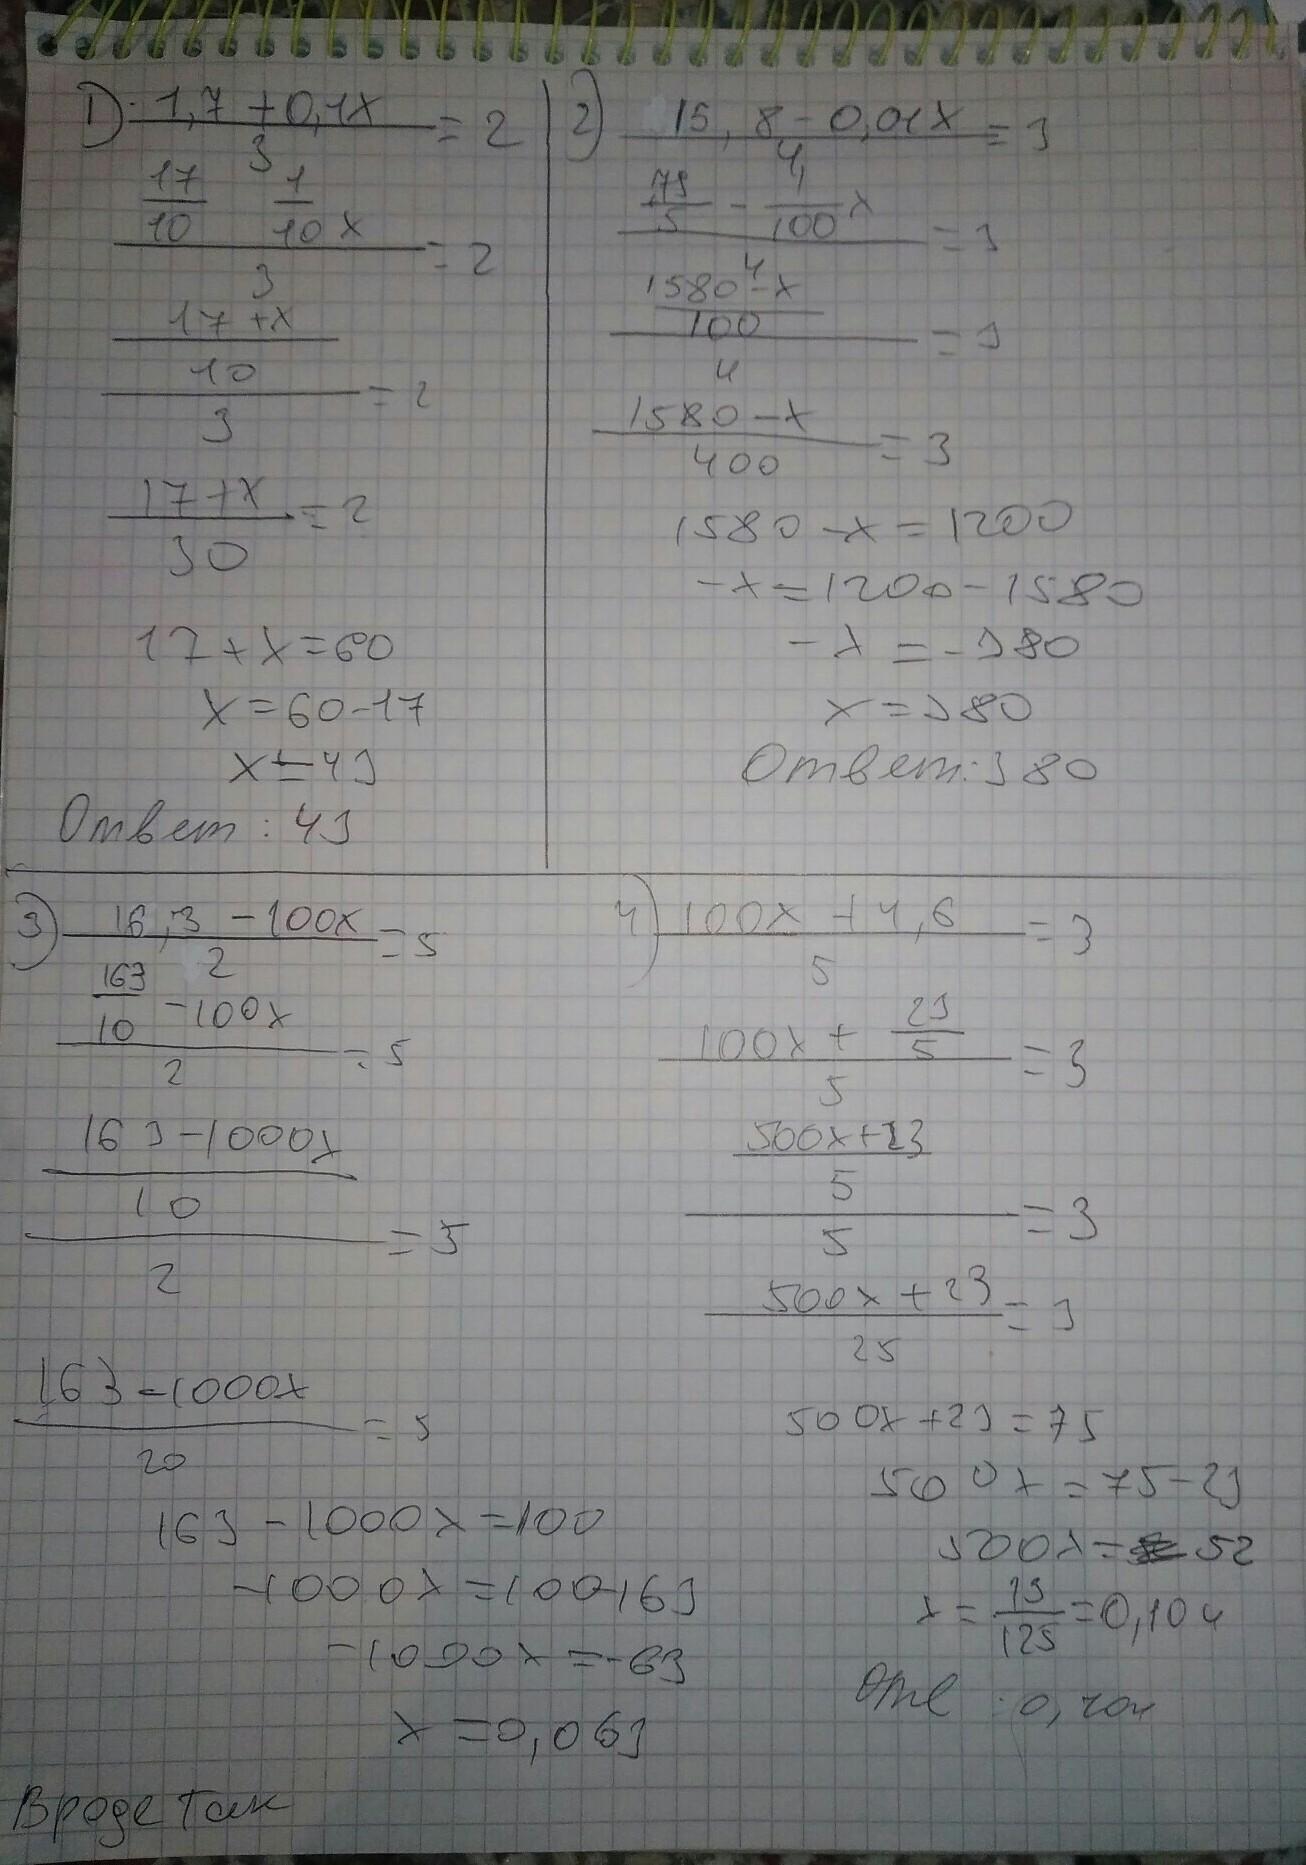 1) 1,7 + 0,1x
3
= 2
17
10
1
10 x
3
= 2
17 + x
10
3
= 2
17 + x
30
= 2
17 + x = 60
x = 60 - 17
x = 43
Ответ : 43
2) 15,8 - 0,01x
4
= 3
79
5
-
1
100
x
4
= 3
1580 - x
100
4
= 3
1580 - x
400
= 3
1580 - x = 1200
-x = 1200 - 1580
-x = -380
x = 380
Ответ: 380
3) 16,3 - 100x
2
= 5
163
10
- 100x
2
= 5
163 - 1000x
10
2
= 5
163 - 1000x
20
= 5
163 - 1000x = 100
-1000x = 100-163
-1000x = -63
x = 0,063
4) 100x + 4,6
5
= 3
100x +
23
5
5
= 3
500x + 23
5
5
= 3
500x + 23
25
= 3
500x + 23 = 75
500x = 75 - 23
500x = 52
x =
13
125
= 0,104
Отв : 0,104
Вроде так